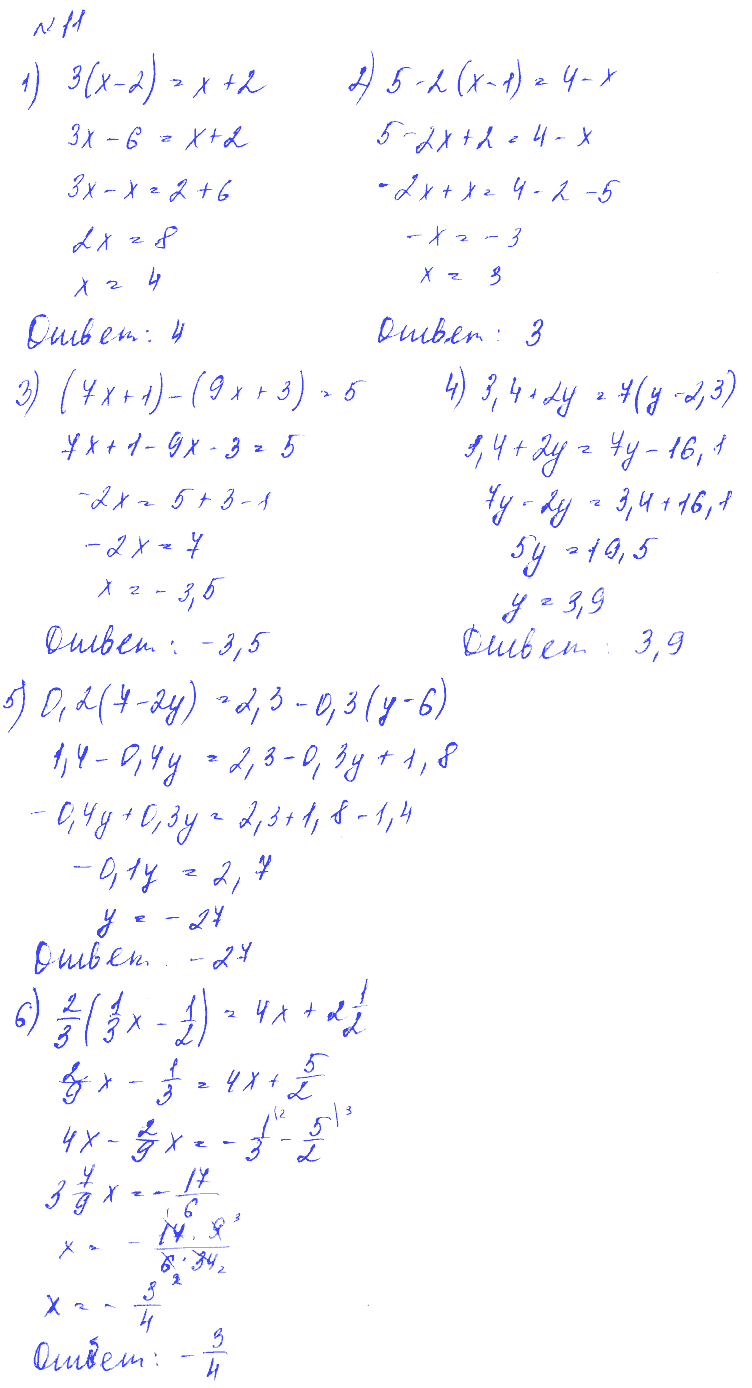 №11
1) 3(x-2) = x+2
3x-6 = x+2
3x-x = 2+6
2x = 8
x = 4
Ответ: 4
2) 5-2(x-1) = 4-x
5-2x+2 = 4-x
-2x+x = 4-2-5
-x = -3
x = 3
Ответ: 3
3) (7x+1)-(9x+3) = 5
7x+1-9x-3 = 5
-2x = 5+3-1
-2x = 7
x = -3,5
Ответ: -3,5
4) 3,4+2y = 7(y-2,3)
3,4+2y = 7y-16,1
7y-2y = 3,4+16,1
5y = 19,5
y = 3,9
Ответ: 3,9
5) 0,2(7-2y) = 2,3-0,3(y-6)
1,4-0,4y = 2,3-0,3y+1,8
-0,4y+0,3y = 2,3+1,8-1,4
-0,1y = 2,7
y = -27
Ответ: -27
6) 2/3(1/3x - 1/2) = 4x + 2 1/2
2/9x - 1/3 = 4x + 5/2
4x - 2/9x = -1/3|2 - 5/2|3
3 7/9x = -17/6
x = - 17·9/6·34 1 3 2 2
x = -3/4
Ответ: -3/4